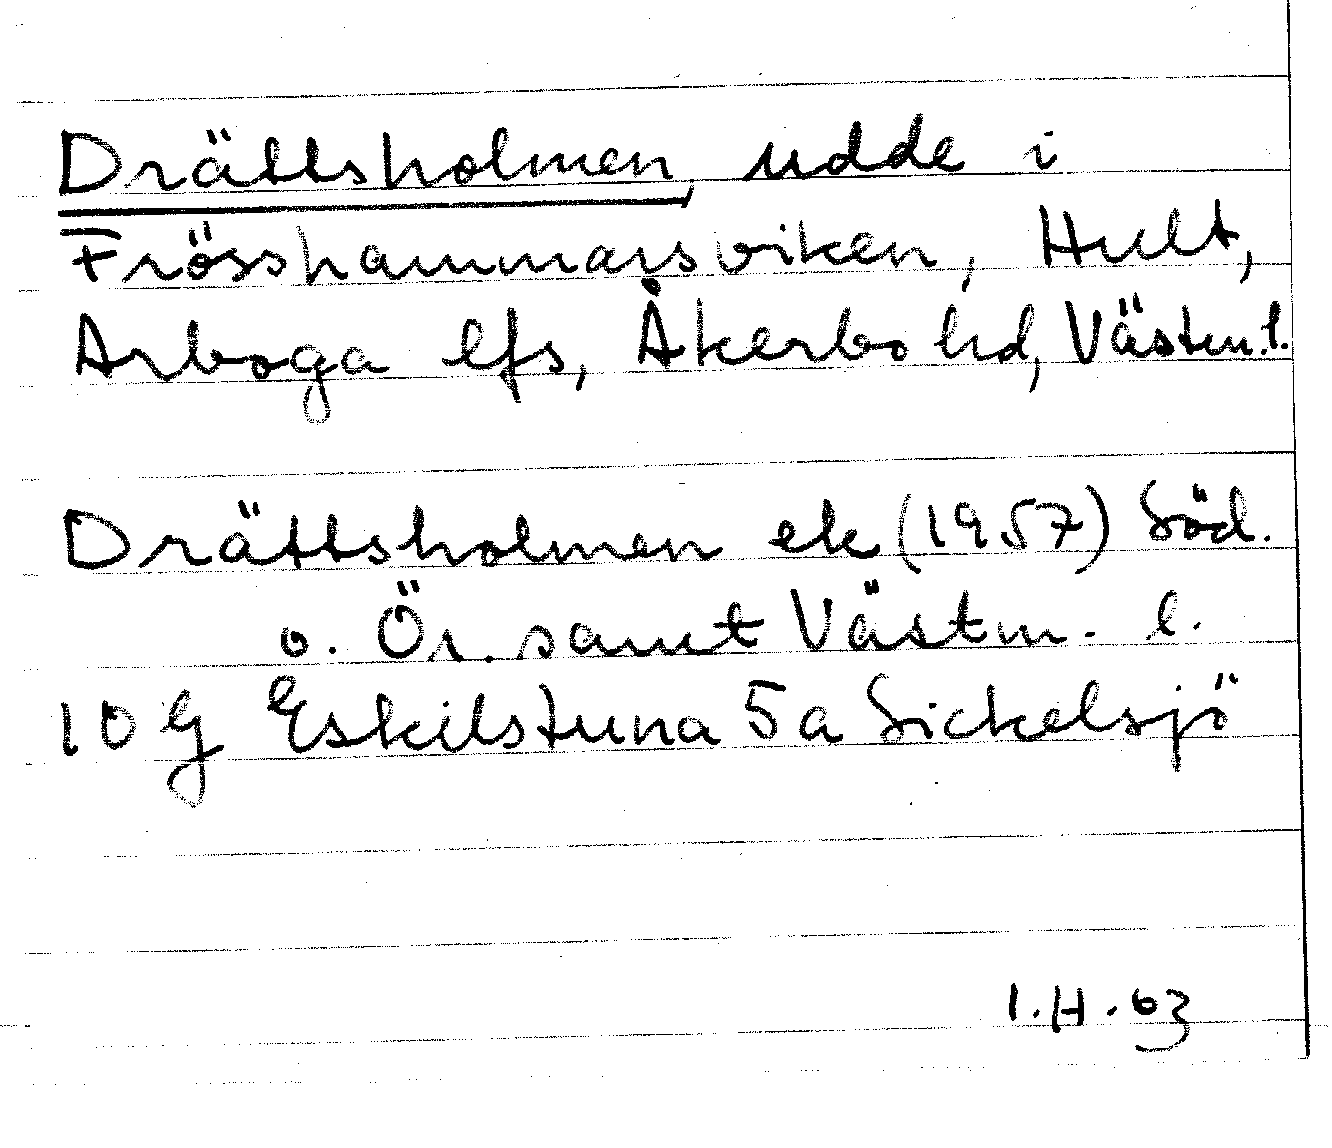 Drättsholmen, udde i
Frösshammarsviken, Hult,
Arboga lfs, Åkerbo hd, Västm. l.
Drättsholmen ek (1957) Söd.
o. Ör. samt Västm. l.
10 G Eskilstuna 5 a Sickelsjö
I.H.63